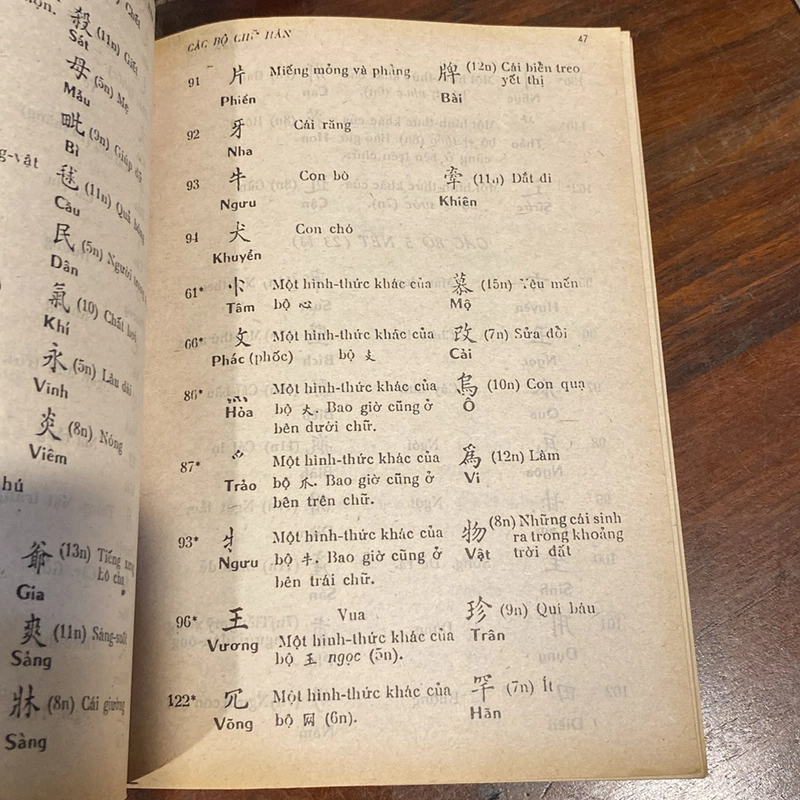 ọn.
殺 (11n) Giết
Sát
母 (5n) Mẹ
Mẫu
毗 (9n) Giáp
Bì
g-vật
毬 (11n) Quả
Cầu
民 (5n) Người
Dân
氣 (10) Chất hơi
Khí
永 (5n) Lâu dài
Vĩnh
炎 (8n) Nóng
Viêm
hú
爺 (13n) Tiếng
Gia
爽 (11n) Sáng-suốt
Sảng
牀 (8n) Cái giường
Sàng
CÁC BỘ CHỮ HÁN 47
91 片 Miếng mỏng và phẳng 牌 (12n) Cái biển treo
yết thị
Phiến Bài
92 牙 Cái răng
Nha
93 牛 Con bò 牽 (11n) Dắt đi
Ngưu Khiên
94 犬 Con chó
Khuyển
61* 㣺 Một hình-thức khác của 慕 (15n) Yêu mến
Tâm bộ 心 Mộ
66* 攵 Một hình-thức khác của 改 (7n) Sửa đổi
Phác (phốc) bộ 攴 Cải
86* 灬 Một hình-thức khác của 烏 (10n) Con quạ
Hỏa bộ 火. Bao giờ cũng ở Ô
bên dưới chữ.
87* 爫 Một hình-thức khác của 爲 (12n) Làm
Trảo bộ 爪. Bao giờ cũng ở Vi
bên trên chữ.
93* 牜 Một hình-thức khác của 物 (8n) Những cái sinh
ra trong khoảng
Ngưu bộ 牛. Bao giờ cũng ở Vật trời đất
bên trái chữ.
96* 王 Vua 珍 (9n) Quí báu
Vương Một hình-thức khác của Trân
bộ 玉 ngọc (5n).
122* 冗 Một hình-thức khác của 罕 (7n) Ít
Võng bộ 网 (6n). Hãn